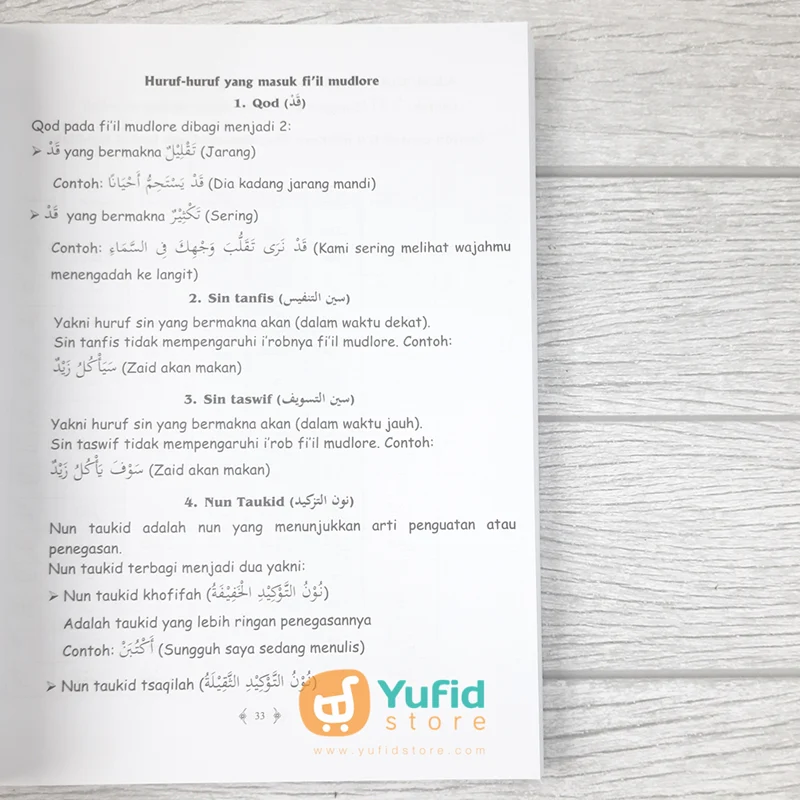 Huruf-huruf yang masuk fi'il mudlore
1. Qod (قَدْ)
Qod pada fi'il mudlore dibagi menjadi 2:
➢ قَدْ yang bermakna تَقْلِيْلٌ (Jarang)
Contoh: قَدْ يَسْتَحِمُّ أَحْيَانًا (Dia kadang jarang mandi)
➢ قَدْ yang bermakna تَكْثِيْرٌ (Sering)
Contoh: قَدْ نَرَى تَقَلُّبَ وَجْهِكَ فِى السَّمَاءِ (Kami sering melihat wajahmu
menengadah ke langit)
2. Sin tanfis (سين التنفيس)
Yakni huruf sin yang bermakna akan (dalam waktu dekat).
Sin tanfis tidak mempengaruhi i'robnya fi'il mudlore. Contoh:
سَيَأْكُلُ زَيْدٌ (Zaid akan makan)
3. Sin taswif (سين التسويف)
Yakni huruf sin yang bermakna akan (dalam waktu jauh).
Sin taswif tidak mempengaruhi i'rob fi'il mudlore. Contoh:
سَوْفَ يَأْكُلُ زَيْدٌ (Zaid akan makan)
4. Nun Taukid (نون التركيد)
Nun taukid adalah nun yang menunjukkan arti penguatan atau
penegasan.
Nun taukid terbagi menjadi dua yakni:
➢ Nun taukid khofifah (نُوْنُ التَّوْكِيْدِ الْخَفِيْفَةُ)
Adalah taukid yang lebih ringan penegasannya
Contoh: أَكْتُبَنْ (Sungguh saya sedang menulis)
➢ Nun taukid tsaqilah (نُوْنُ التَّوْكِيْدِ الثَّقِيْلَةُ)
33
Yufid
store
www.yufidstore.com